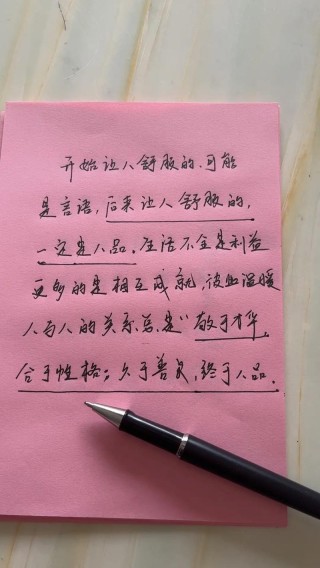 开始让人舒服的、可能
是言语，后来让人舒服的，
一定是人品。生活不全是利益
更多的是相互成就，彼此温暖
人与人的关系总是“敬于才华，
合于性格；久于善良，终于人品。